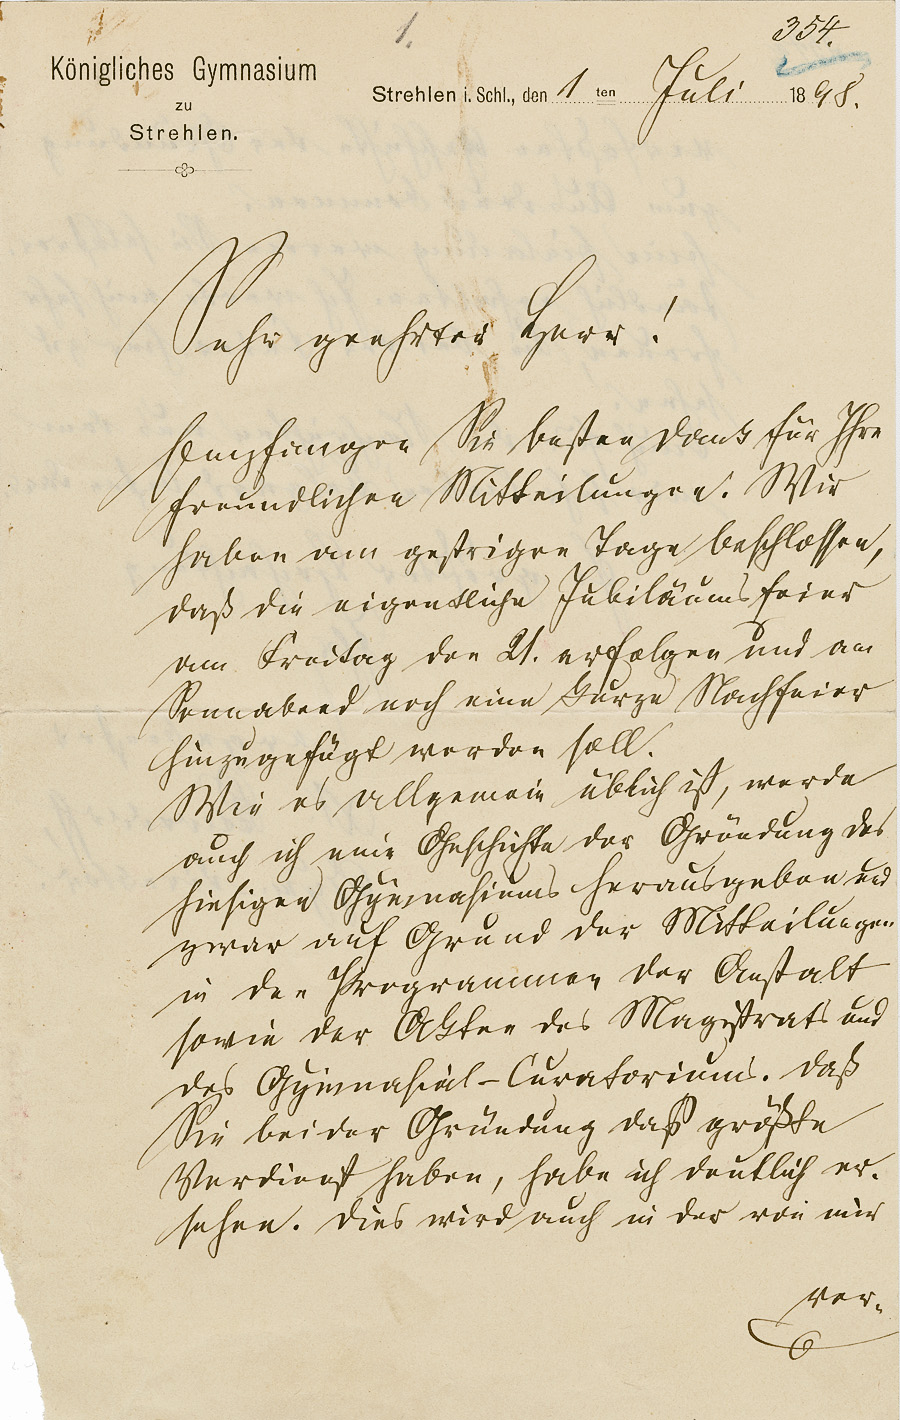 1.
354.
Königliches Gymnasium
zu
Strehlen.
Strehlen i. Schl., den 1 ten Juli 1898.
Sehr geehrter Herr!
Empfangen Sie besten Dank für Ihre
freundlichen Mitteilungen. Wir
haben am gestrigen Tage beschlossen,
daß die eigentliche Jubiläumsfeier
am Freitag den 21. erfolgen und am
Sonnabend noch eine kurze Nachfeier
hinzugefügt werden soll.
Wie es allgemein üblich ist, werde
auch ich eine Geschichte der Gründung des
hiesigen Gymnasiums herausgeben und
zwar auf Grund der Mitteilungen
in den Programmen der Anstalt
sowie der Akten des Magistrats und
des Gymnasial-Curatoriums. Daß
Sie bei der Gründung daß größte
Verdienst haben, habe ich deutlich er-
sehen. Dies wird auch in der von mir
ver-